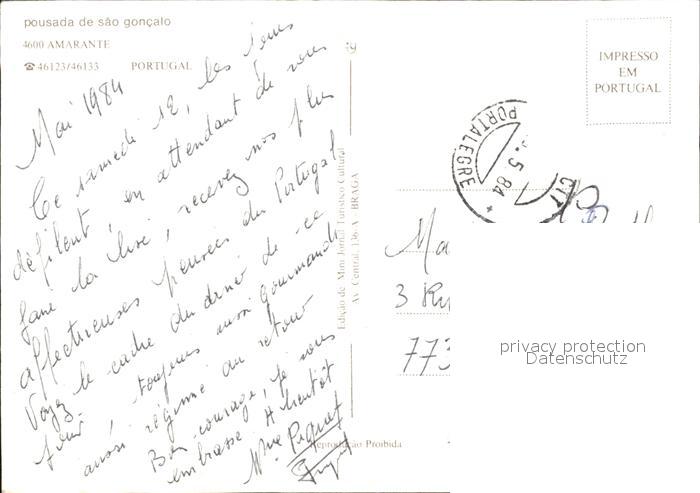 pousada de são gonçalo
4600 AMARANTE
☎46123/46133 PORTUGAL
Mai 1984
Ce samedi 12, les jeux
défilent, en attendant de vous
faire la bise, recevez nos plus
affectueuses pensées du Portugal
Voyez le cadre du dîner de ce
jour, toujours aussi gourmands
aussi régime au retour
Bon courage, je vous
embrasse A bientôt
Mme Piquet
Edição de Mini Jornal Turístico Cultural
Av. Central, 136-A BRAGA
Reprodução Proibida
IMPRESSO
EM
PORTUGAL
PORTALEGRE
5.84
CTT
Ma
3 Ru
773
privacy protection
Datenschutz